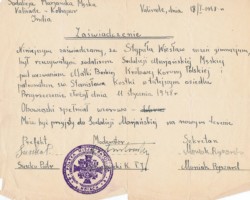 Sodalicja Mariańska Męska
Valivade - Kolhapur
India
Valivade, dnia 18/I-1948 r.
Zaświadczenie
Niniejszym zaświadczamy, że Stypuła Wiesław uczeń gimnazjum,
był rzeczywistym sodalisem Sodalicji Mariańskiej Męskiej
pod wezwaniem Matki Boskiej Królowej Korony Polskiej
i patronatem św. Stanisława Kostki w tutejszym osiedlu.
Przyrzeczenie złożył dnia 11 stycznia 1948 r.
Obowiązki spełniał wzorowo
Może być przyjęty do Sodalicji Mariańskiej na nowym terenie.
Prefekt
Moderator
Sekretarz
K. T. J.
Maniak Ryszard